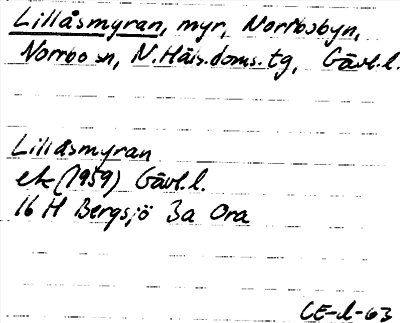 Lillåsmyran, myr, Norrbobyn,
Norrbo sn, N.Häls.doms.tg, Gävl.l.
Lillåsmyran
ek (1959) Gävl.l.
16 H Bergsjö 3a Ora
CE-l-63